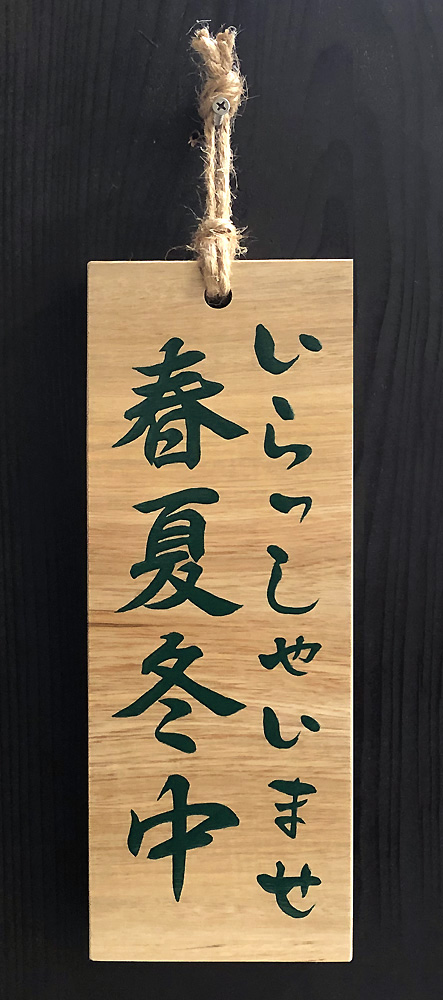 いらっしゃいませ
春夏冬中